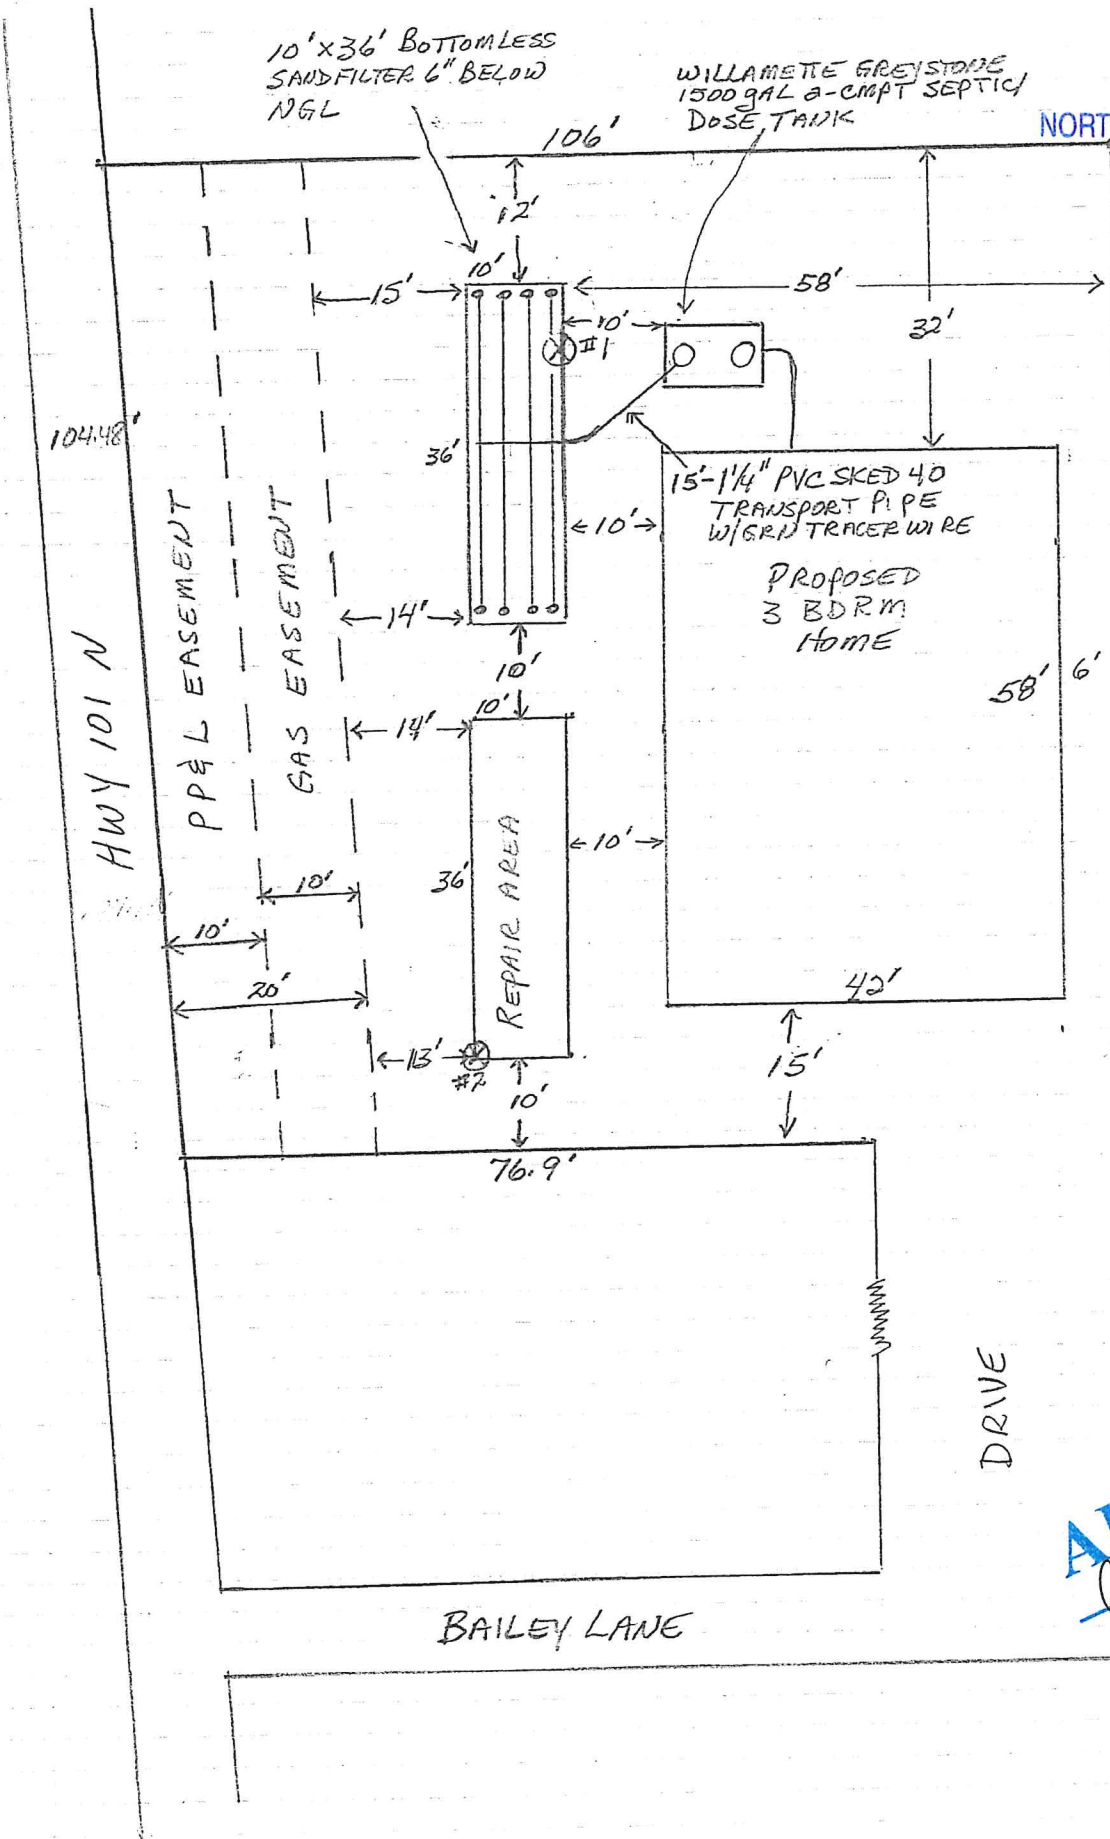 10'x36' BOTTOMLESS
SANDFILTER 6" BELOW
NGL
WILLAMETTE GREYSTONE
1500 gAL 2-CMPT SEPTIC/
DOSE TANK
NORT
106'
12'
10'
15'
58'
10'
#1
32'
104.48'
36'
15'-1¼" PVC SKED 40
TRANSPORT PIPE
W/GRN TRACER WIRE
10'
PROPOSED
3 BDRM
HOME
14'
10'
58'
6'
10'
14'
HWY 101 N
PP&L EASEMENT
GAS EASEMENT
REPAIR AREA
10'
36'
10'
10'
20'
42'
13'
#2
10'
15'
76.9'
DRIVE
BAILEY LANE